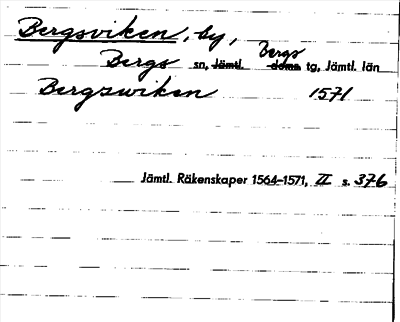 Bergsviken, by,
Bergs sn, Jämtl. Bergs -doms tg, Jämtl. län
Bergzwiken 1571
Jämtl. Räkenskaper 1564-1571, II s. 376